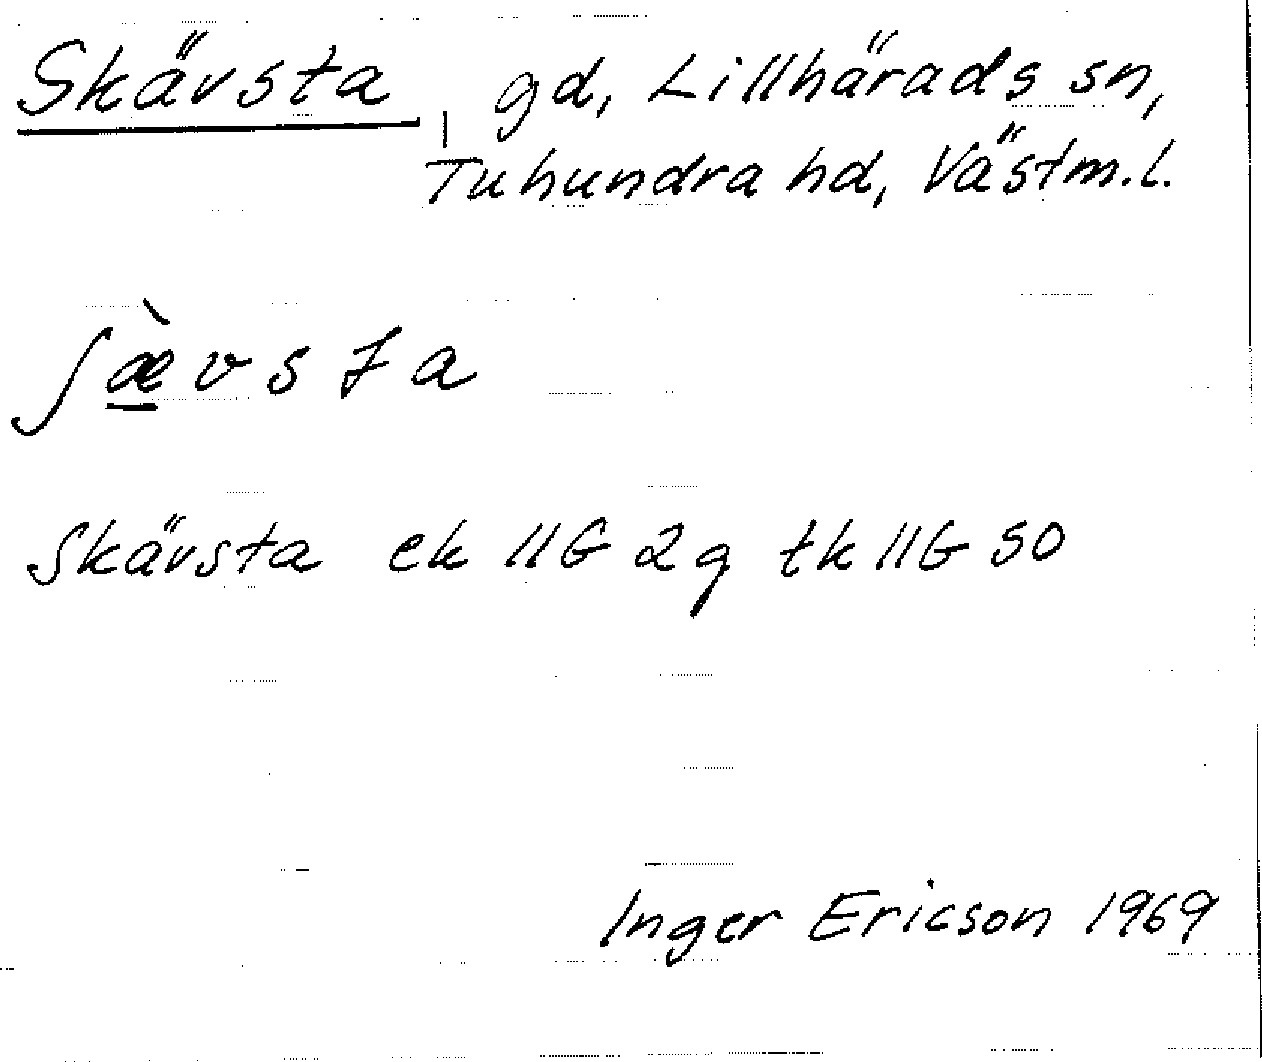 Skävsta, gd, Lillhärads sn,
Tuhundra hd, Västm.l.
ʃæ̠̀vsta
Skävsta ek 11G 2g tk 11G SO
Inger Ericson 1969